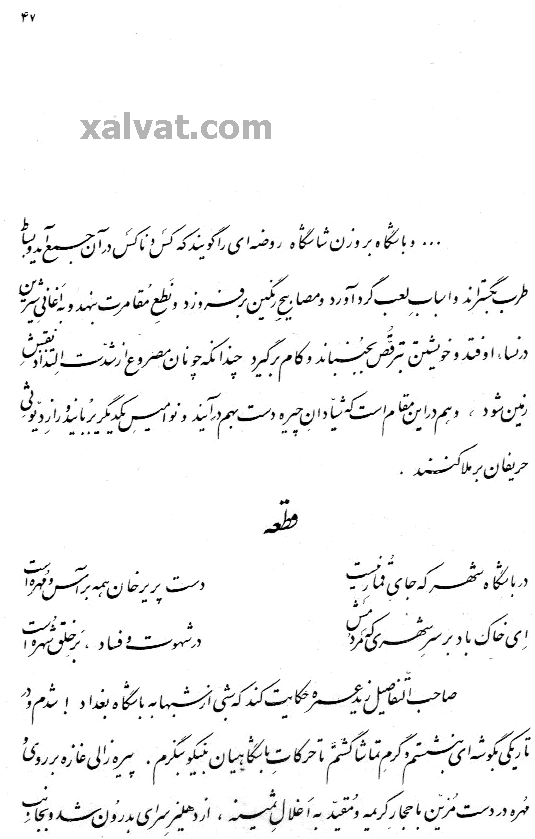 ۴۷
xalvat.com
... و باشگاه بر وزن شاشگاه روضه‌ای را گویند که کس و ناکس در آن جمع آید و بساط
طرب بگستراند و اسباب لعب گرد آورد و مصابیح رنگین برفروزد و نطع مقامرت بنهد و به اغانی شیرین
در نساء اوفتد و خویشتن بترقص بجنباند و کام برگیرد چندانکه چونان مصروع از شدت التذاد نقش
زمین شود ، و هم در این مقام است که شیادان چیره دست بهم در آیند و نوامیس یکدیگر بربایند و راز دیوثی
حریفان برملا کنند .
قطعه
در باشگاه شهر که جای قمار نیست
دست پریرخان همه بر آس و مهره است
ای خاک باد بر سر شهری که مردمش
در شهوت و فساد ، بر خلق شهره است
صاحب التفاصیل ید عمره حکایت کند که شبی از شبها به باشگاه بغداد اندر شدم و در
تاریکی بگوشه‌ای بنشستم و گرم تماشا گشتم تا حرکات باشگاهیان نیکو بنگرم . پیره زالی غازه بر روی و
مهره در دست مزین باحجار کریمه و مقید به اغلال ثمینه ، از دهلیز سرای بدرون شد و بجانب